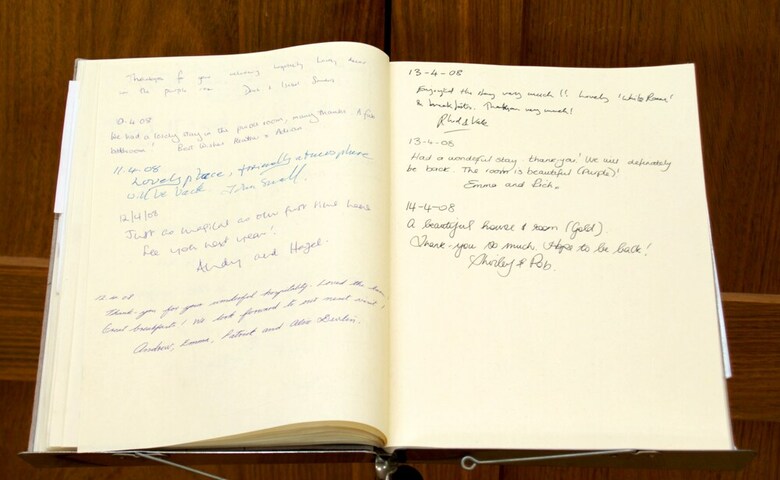 Thankyou for your welcoming hospitality. Lovely
in the purple room
9.4.08
We had a lovely stay in the purple room, many thanks. A fab
bathroom! Best Wishes Heather & Adrian
11.4.08
Lovely place, friendly atmosphere
will be back
12/4/08
Just as magical as our first time here
See you next year!
Andy and Hazel.
12.4.08
Thank-you for your wonderful hospitality. Loved the
Great breakfasts! We look forward to our next
Andrew, Emma, Patrick and Alex Devlin.
13-4-08
Enjoyed the stay very much!! Lovely 'White Room'
& breakfasts. Thankyou very much!
13-4-08
Had a wonderful stay, thank you! We will definately
be back. The room is beautiful (purple)!
Emma and Rich.
14-4-08
A beautiful house & room (Gold)
Thank-you so much. Hope to be back!
Shirley & Rob.